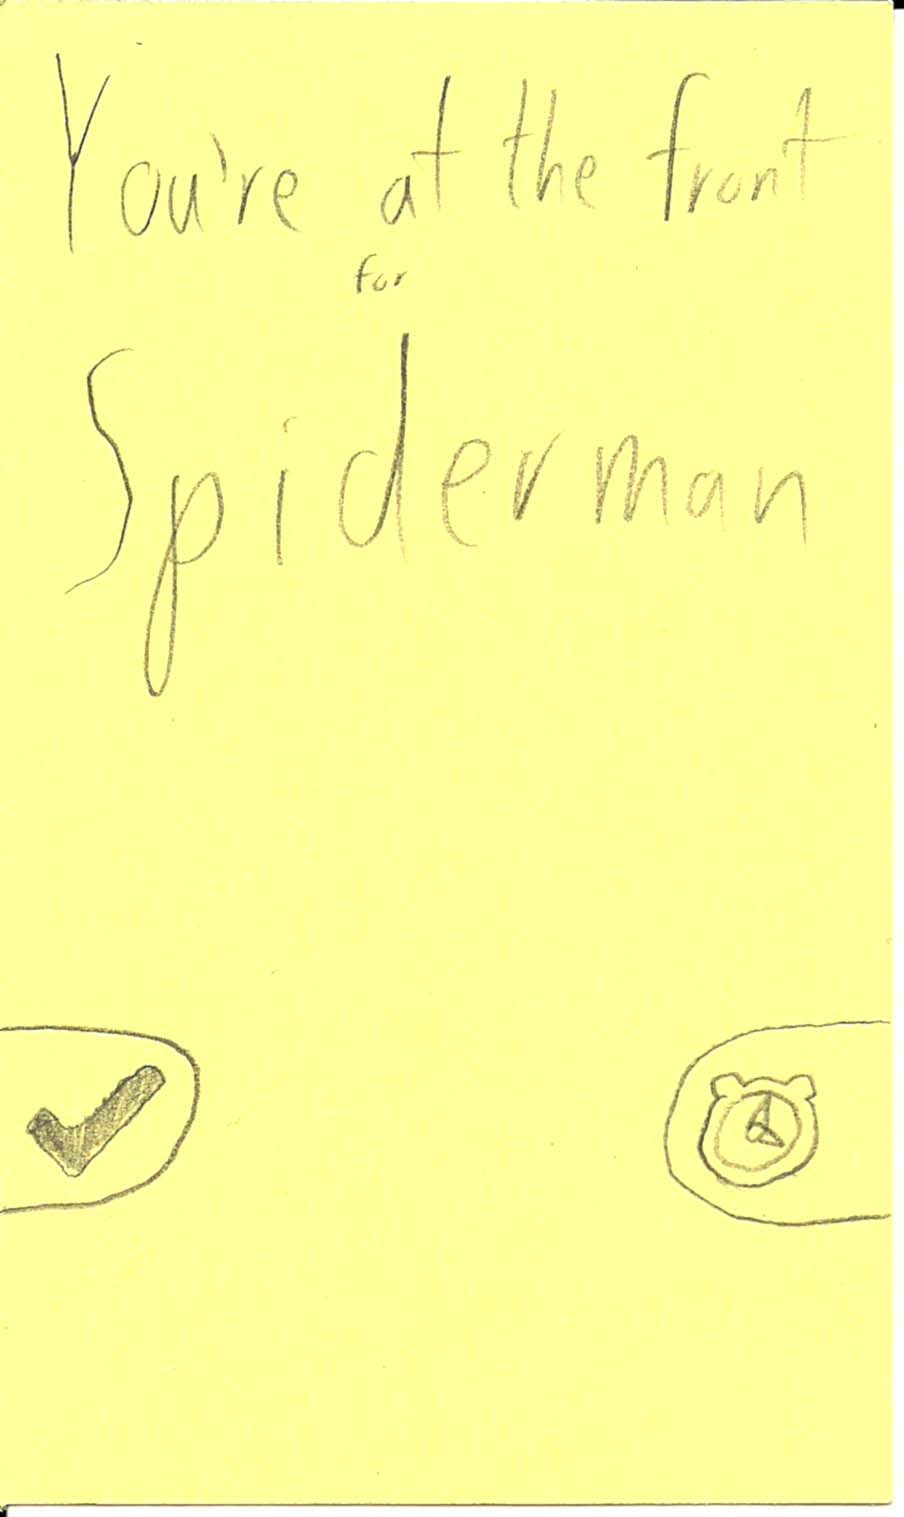 You're at the front
for
Spiderman